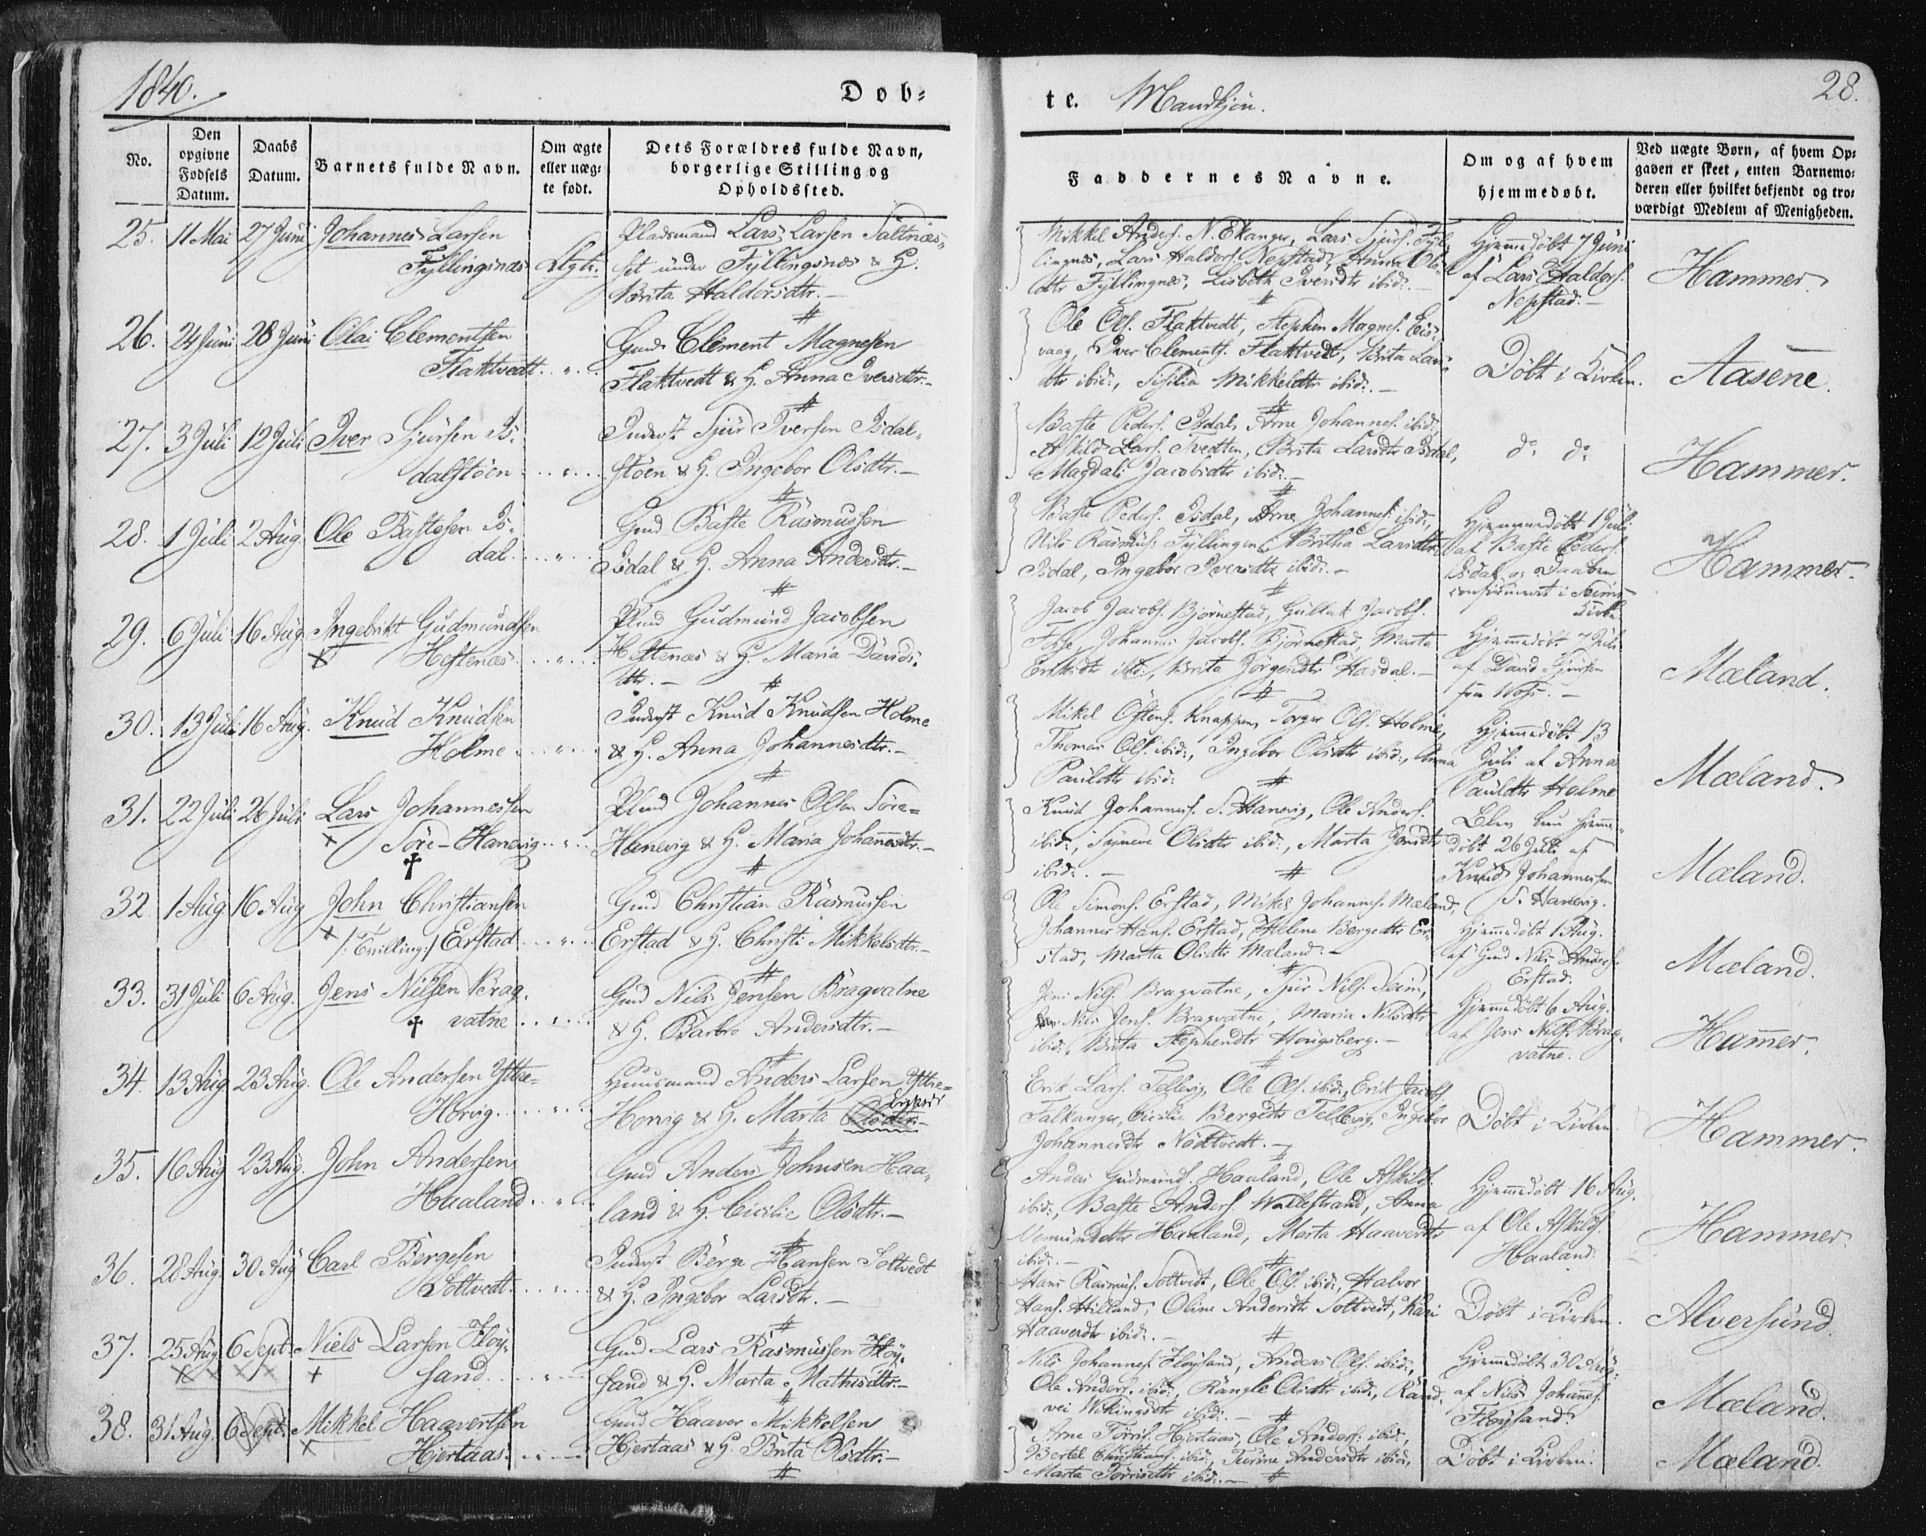 1840.
Døb-
te. Mandkjøn.
28.
No.
Den opgivne Fødsels Datum.
Daabs Datum.
Barnets fulde Navn.
Om ægte eller uægte født.
Dets Forældres fulde Navn, borgerlige Stilling og Opholdssted.
Faddernes Navne.
Om og af hvem hjemmedøbt.
Ved uægte Børn, af hvem Opgaven er skeet, enten Barnemoderen eller hvilket bekjendt og troværdigt Medlem af Menigheden.
25. 11 Mai 27 Juni Johannes Larsen
Fyllingsnæs
Pladsmand Lars Larsen Saltnæs
set under Fyllingsnæs & H.
Brita Haldorsdtr. —
Mikkel Anders. N. Ekanger, Lars Sjurs. Fyl-
lingnæs, Lars Haldors. Nepstad, Anna Ols-
dtr Fyllingnæs, Lisbeth Iversdtr ibid. —
Hjemmedøbt 7 Juni
af Lars Haldors.
Nepstad. —
Hammer.
26. 24 Juni 28 Juni Olai Clementsen
Flaktvedt
Gmd. Clement Magnesen
Flaktvedt & H. Anna Iversdtr. —
Ole Ols. Flaktvedt, Stephen Magnes. Eis-
vaag, Iver Clements. Flaktvedt, Brita Lars-
dtr ibid., Sisilia Mikkelsdtr ibid. —
Døbt i Kirken.
Aasene.
27. 3 Juli 12 Juli Iver Sjursen Is-
dalstøen
Inderst Sjur Iversen Isdal-
støen & H. Ingebor Olsdtr. —
Baste Peders. Isdal, Arne Johannes. ibid.
Askild Lars. Tvedten, Brita Larsdtr Isdal,
Magdali Jacobsdtr ibid. —
do do
Hammer.
28. 1 Juli 2 Aug. Ole Bastesen Is-
dal
Gmd Baste Rasmussen
Isdal & H. Anna Andersdtr. —
Baste Peders. Isdal, Arne Johannes. ibid.,
Nils Rasmus. Fyllingen, Britha Larsdtr
Isdal, Ingebor Iversdtr ibid. —
Hjemmedøbt 1 Juli
af Baste Peders.
Isdal og Daaben
confirmeret i Seims
Kirke
Hammer.
29. 6 Juli 16 Aug. Ingebrikt Gudmundsen
Hestenæs
Plmd Gudmund Jacobsen
Hestenæs & H. Maria Davids-
dtr. —
Jacob Jacobs. Bjørnestad, Gullak Jacobs.
Johannes Jacobs. Bjørnestad, Marta
ibid., Brita Jørgensdtr Hasdal. —
Hjemmedøbt 7 Juli
af David Sjursen
Mæland.
30. 13 Juli 16 Aug. Knud Knudsen
Holme
Inderst Knud Knudsen Holme
& H. Anna Johannesdtr. —
Mikel Østens. Knappen, Torger Ols. Holme,
Thomas Ols. ibid., Ingebor Olsdtr ibid., Anna
Paulsdtr ibid.
Hjemmedøbt 13
Juli af Anna
Paulsdtr Holme
Mæland.
31. 22 Juli 26 Juli Lars Johannessen
Søre-Hanevig
Plmd Johannes Olsen Søre-
Hanevig & H. Maria Johannesdtr. —
Knud Johanness. S. Hanevig, Ole Anders.
ibid., Synneve Olsdtr ibid., Marta Jonsdtr
ibid. —
Blev kun hjemme-
døbt 26 Juli af
Knud Johannessen
S. Hanevig.
Mæland.
32. 1 Aug 16 Aug John Christiansen
/: Tvilling:/ Erstad
Gmd Christian Rasmussen
Erstad & H. Christi Mikkelsdtr. —
Ole Simons. Erstad, Mikel Johannes. Mæland,
Johannes Hans. Erstad, Helene Bergesdtr Er-
stad, Marta Olsdtr Mæland. —
Hjemmedøbt 1 Aug.
af Gmd Nils Anders.
Erstad.
Mæland.
33. 31 Juli 6 Aug. Jens Nilsen Brag-
vatne
Gmd Nils Jensen Bragvatne
& H. Barbro Andersdtr. —
Jens Nils. Bragvatne, Sjur Nils. Seim,
Nils Jens. Bragvatne, Maria Nilsdtr
ibid., Brita Stephensdtr Hougsberg. —
Hjemmedøbt 6 Aug.
af Jens Nils. Brag-
vatne.
Hammer.
34. 13 Aug 23 Aug. Ole Andersen Yttre-
Horvig
Huusmand Anders Larsen Yttre-
Horvig & H. Marta Olsdtr. —
Erik Lars. Tellevig, Ole Ols. ibid., Erik Jacobs.
Falkanger, Cicilie Bergesdtr Tellevig, Ingebor
Johannesdtr Nødtvedt. —
Døbt i Kirken
Hammer.
35. 16 Aug 23 Aug. John Andersen
Haaland
Gmd Anders Johnsen Haa-
land & H. Cicilie Olsdtr. —
Anders Gudmund. Haaland, Ole Askilds.
ibid., Baste Anders. Wallestrand, Anna
Haaland, Marta Haaversdtr
ibid. —
Hjemmedøbt 16 Aug.
af Ole Askilds.
Haaland.
Hammer.
36. 28 Aug. 30 Aug Carl Bergesen
Soltvedt
Inderst Berge Hansen Soltvedt
& H. Ingebor Larsdtr. —
Hans Rasmus. Soltvedt, Ole Ols. ibid., Halvor
Hans. Hilland, Oline Andersdtr Soltvedt, Kari
Haaversdtr ibid. —
Døbt i Kirken.
Alversund.
37. 25 Aug 6 Sept. Niels Larsen Fløy-
sand
Gmd Lars Rasmussen Fløy-
sand & H. Marta Mathisdtr. —
Nils Johannes. Fløysand, Anders Ols. ibid.,
Ole Anders. ibid., Rangle Olsdtr ibid., Rand-
vei Wikingsdtr ibid. —
Hjemmedøbt 30 Aug.
af Nils Johannes.
Fløysand.
Mæland.
38. 31 Aug. 6 Sept. Mikkel Haavertsen
Hjertaas
Gmd Haaver Mikkelsen
Hjertaas & H. Brita Olsdtr. —
Arne Torris. Hjertaas, Ole Anders. ibid.,
Bertel Christians. ibid., Turina Andersdtr ibid.,
Marta Torrisdtr ibid. —
Døbt i Kirken.
Mæland.